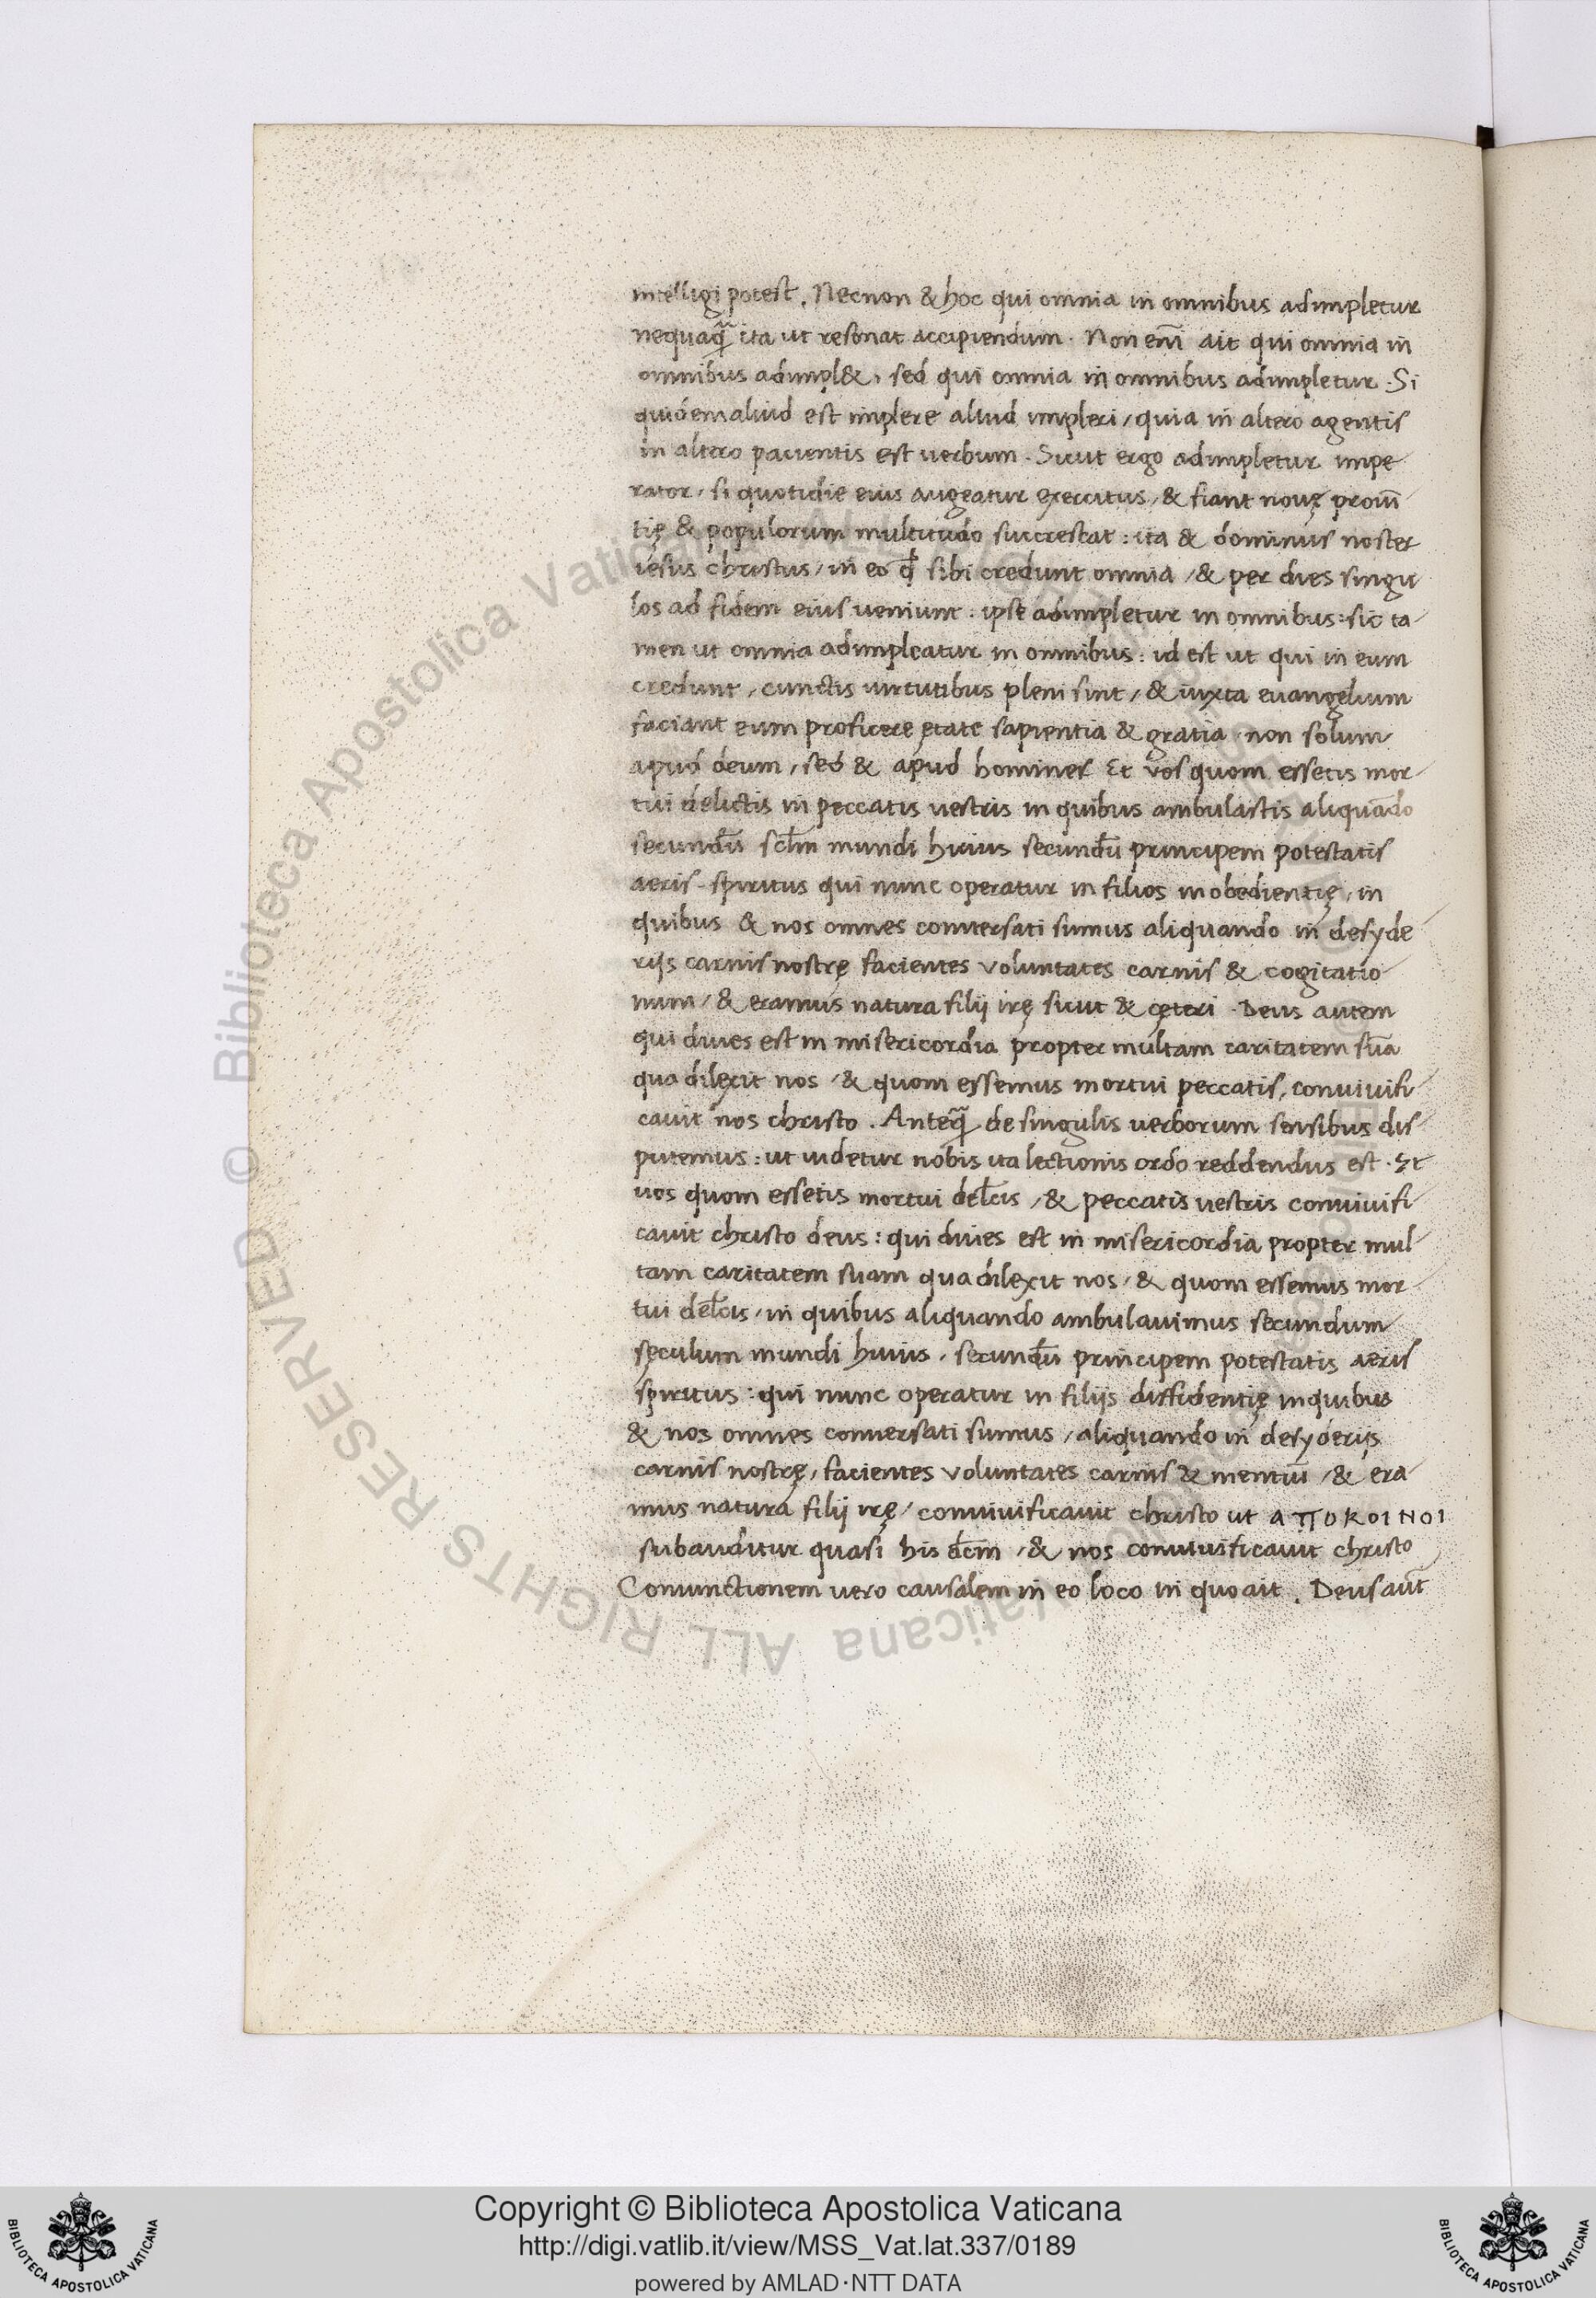 intelligi potest. Necnon & hoc qui omnia in omnibus adimpletur
nequaq̃ ita ut resonat accipiendum. Non enī ait qui omnia in
omnibus adimpl&, sed qui omnia in omnibus adimpletur. Si
quidem aliud est implere aliud impleri, quia in altero agentis
in altero patientis est uerbum. Sicut ergo adimpletur impe
rator, si quotidie eius augeatur exercitus, & fiant nouę prouī
tię & populorum multitudo succrescat: ita & dominus noster
iesus christus, in eo ꝙ sibi credunt omnia, & per dies singu
los ad fidem eius ueniunt: ipse adimpletur in omnibus: sic ta-
men ut omnia adimpleatur in omnibus: id est ut qui in eum
credunt, cunctis uirtutibus pleni sint, & iuxta euangelium
faciant eum proficere ętate sapientia & gratia, non solum
apud deum, sed & apud homines Et vos quom essetis mor-
tui delictis in peccatis uestris in quibus ambulastis aliquādo
secundū sclm̄ mundi huius secundū principem potestatis
aeris spiritus qui nunc operatur in filios inobedientię, in
quibus & nos omnes conuersati sumus aliquando in desyde
rijs carnis nostrę facientes voluntates carnis & cogitatio-
num, & eramus natura filij irę sicut & cęteri. Deus autem
qui diues est in misericordia propter multam caritatem suā
qua dilexit nos, & quom essemus mortui peccatis, conuiuifi-
cauit nos christo. Anteq̃ de singulis uerborum sensibus dis-
putemus: ut uidetur nobis ita lectionis ordo reddendus est. Et
uos quom essetis mortui del̄cis, & peccatis uestris conuiuifi
cauit christo deus: qui diues est in misericordia propter mul-
tam caritatem suam qua dilexit nos, & quom essemus mor-
tui del̄cis, in quibus aliquando ambulauimus secundum
sęculum mundi huius, secundū principem potestatis aeris
spiritus: qui nunc operatur in filijs diffidentię in quibus
& nos omnes conuersati sumus, aliquando in desyderijs
carnis nostrę, facientes voluntates carnis & mentiū, & era-
mus natura filij irę, conuiuificauit christo ut ΑΠΟΚΟΙΝΟΙ
subauditur quasi bis dc̄m, & nos conuiuificauit christo
Coniunctionem uero causalem in eo loco in quo ait. Deus aut̄
© Biblioteca Apostolica Vaticana ALL RIGHTS RESERVED
Copyright © Biblioteca Apostolica Vaticana
http://digi.vatlib.it/view/MSS_Vat.lat.337/0189
powered by AMLAD·NTT DATA
BIBLIOTECA APOSTOLICA VATICANA
BIBLIOTECA APOSTOLICA VATICANA